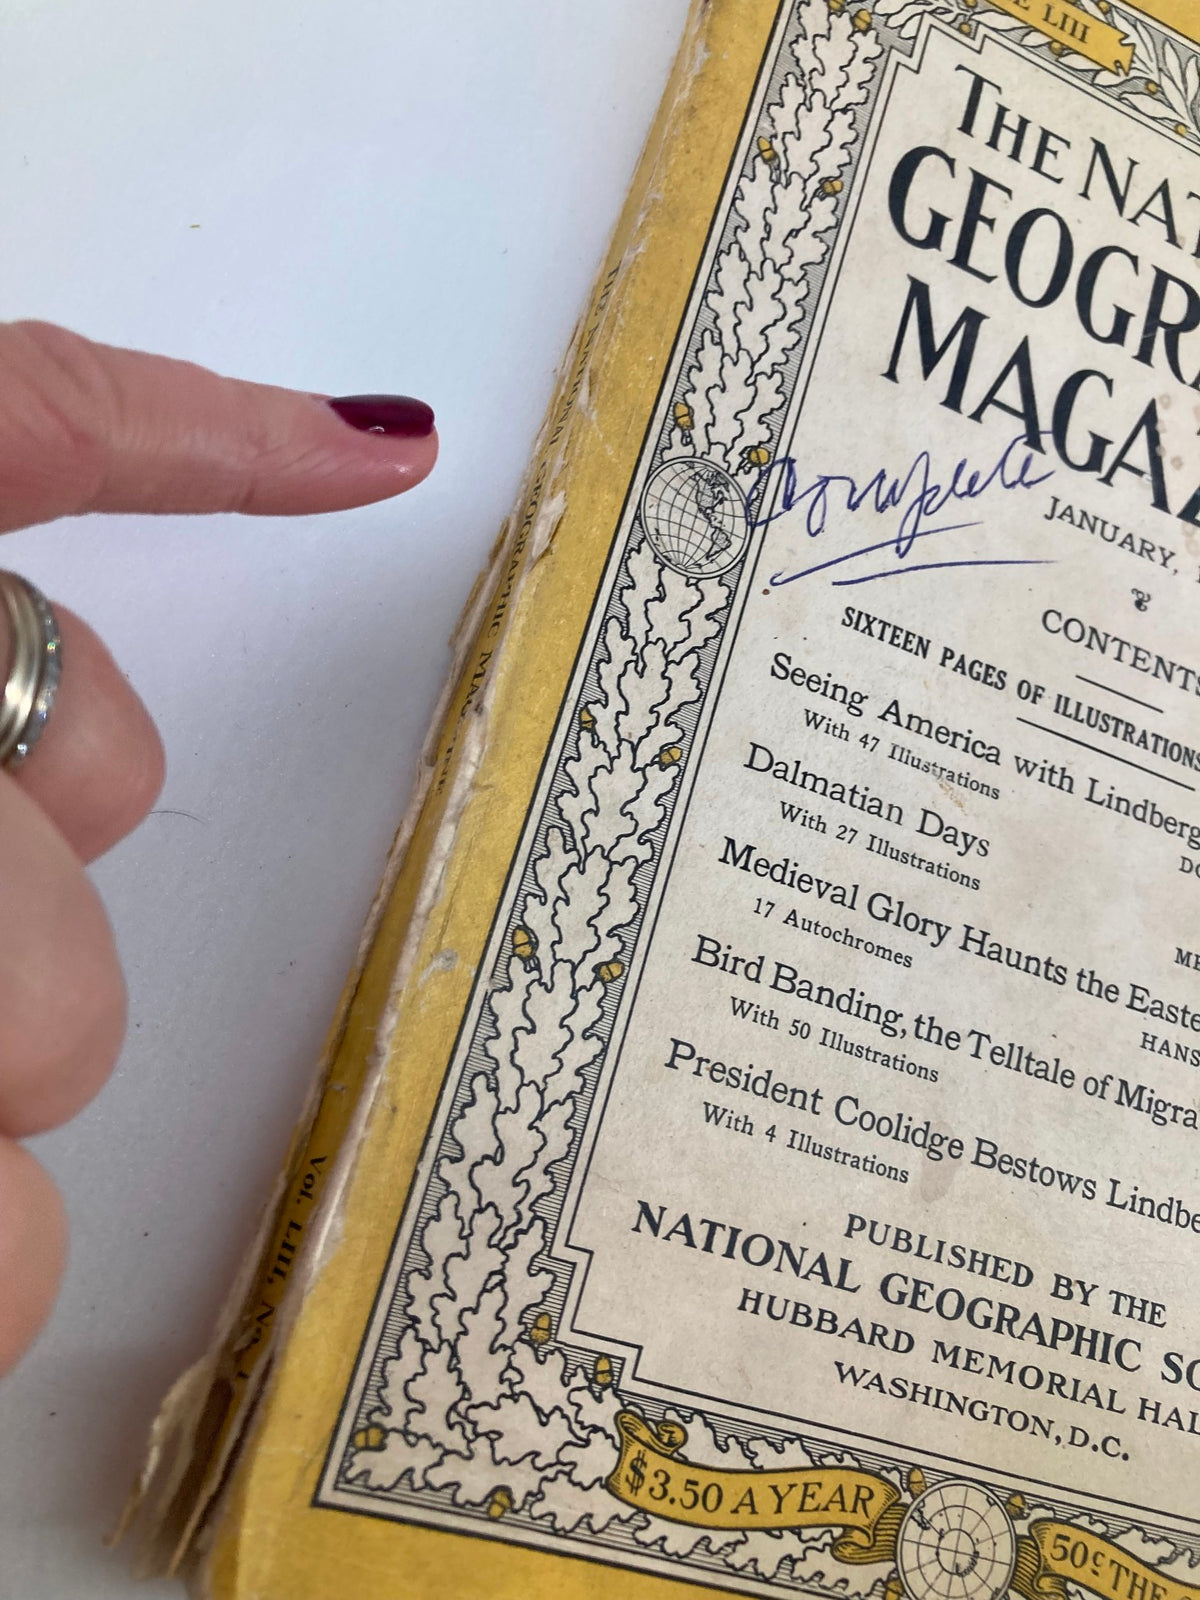 LIII
THE NAT
GEOGR
MAGAZ
Complete
JANUARY,
CONTENTS
SIXTEEN PAGES OF ILLUSTRATIONS
Seeing America with Lindberg
With 47 Illustrations
DO
Dalmatian Days
With 27 Illustrations
ME
Medieval Glory Haunts the Easte
17 Autochromes
HANS
Bird Banding, the Telltale of Migra
With 50 Illustrations
President Coolidge Bestows Lindbe
With 4 Illustrations
PUBLISHED BY THE
NATIONAL GEOGRAPHIC SO
HUBBARD MEMORIAL HAL
WASHINGTON, D.C.
$3.50 A YEAR
50¢ THE
THE NATIONAL GEOGRAPHIC MAGAZINE
Vol. LIII, No. 1